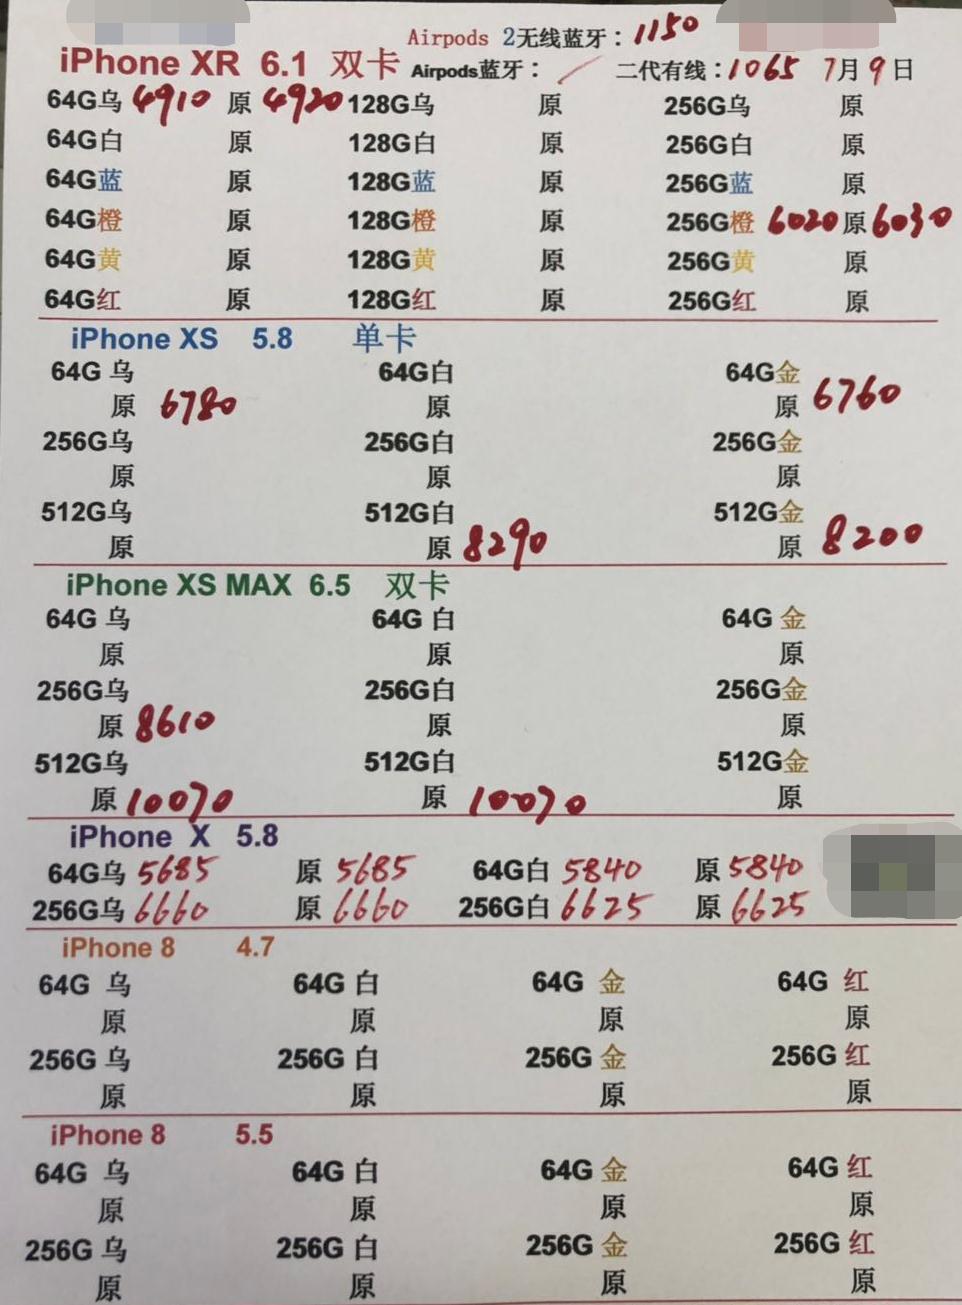 Airpods 2无线蓝牙：1150
iPhone XR 6.1 双卡 Airpods蓝牙：/ 二代有线：1065 7月9日
64G乌 4910 原 4920 128G乌 原 256G乌 原
64G白 原 128G白 原 256G白 原
64G蓝 原 128G蓝 原 256G蓝 原
64G橙 原 128G橙 原 256G橙 6020 原 6030
64G黄 原 128G黄 原 256G黄 原
64G红 原 128G红 原 256G红 原
iPhone XS 5.8 单卡
64G 乌 64G白 64G金
原 6780 原 原 6760
256G乌 256G白 256G金
原 原 原
512G乌 512G白 512G金
原 原 8290 原 8200
iPhone XS MAX 6.5 双卡
64G 乌 64G 白 64G 金
原 原 原
256G乌 256G白 256G金
原 8610 原 原
512G乌 512G白 512G金
原 10070 原 10070 原
iPhone X 5.8
64G乌 5685 原 5685 64G白 5840 原 5840
256G乌 6660 原 6660 256G白 6625 原 6625
iPhone 8 4.7
64G 乌 64G 白 64G 金 64G 红
原 原 原 原
256G 乌 256G 白 256G 金 256G 红
原 原 原 原
iPhone 8 5.5
64G 乌 64G 白 64G 金 64G 红
原 原 原 原
256G 乌 256G 白 256G 金 256G 红
原 原 原 原